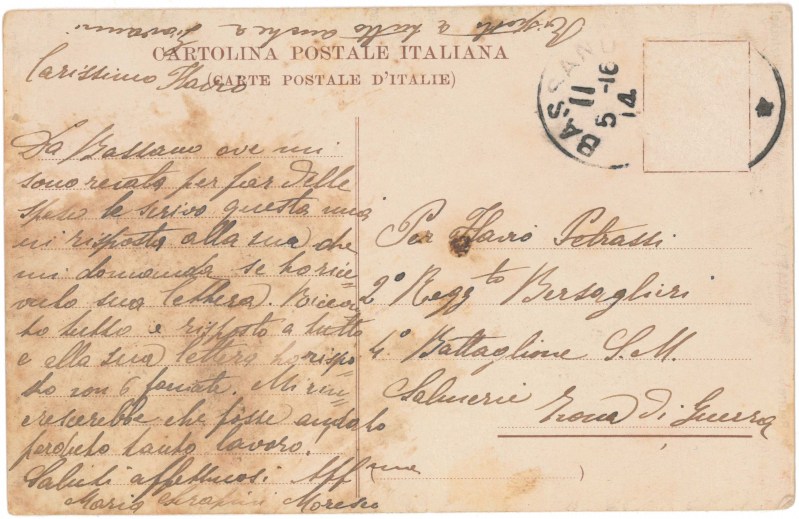 Risposto a tutto anche a Giovanni
CARTOLINA POSTALE ITALIANA
(CARTE POSTALE D'ITALIE)
Carissimo Flavio
BASSANO
11
5-16
14
Da Bassano ove mi
sono recata per far delle
spese le scrivo questa mia
in risposta alla sua che
mi domanda se ho rice=
vuto sua lettera. Ricevu
to tutto e risposto a tutto
e alla sua lettera ho rispo
sto con 6 facciate. Mi rin
crescerebbe che fosse andato
perduto tanto lavoro.
Saluti affettuosi Aff me
Maria Moresco
Per Flavio Petrassi
2º Regg.to Bersaglieri
4º Battaglione S.M.
Salmerie
Zona di Guerra